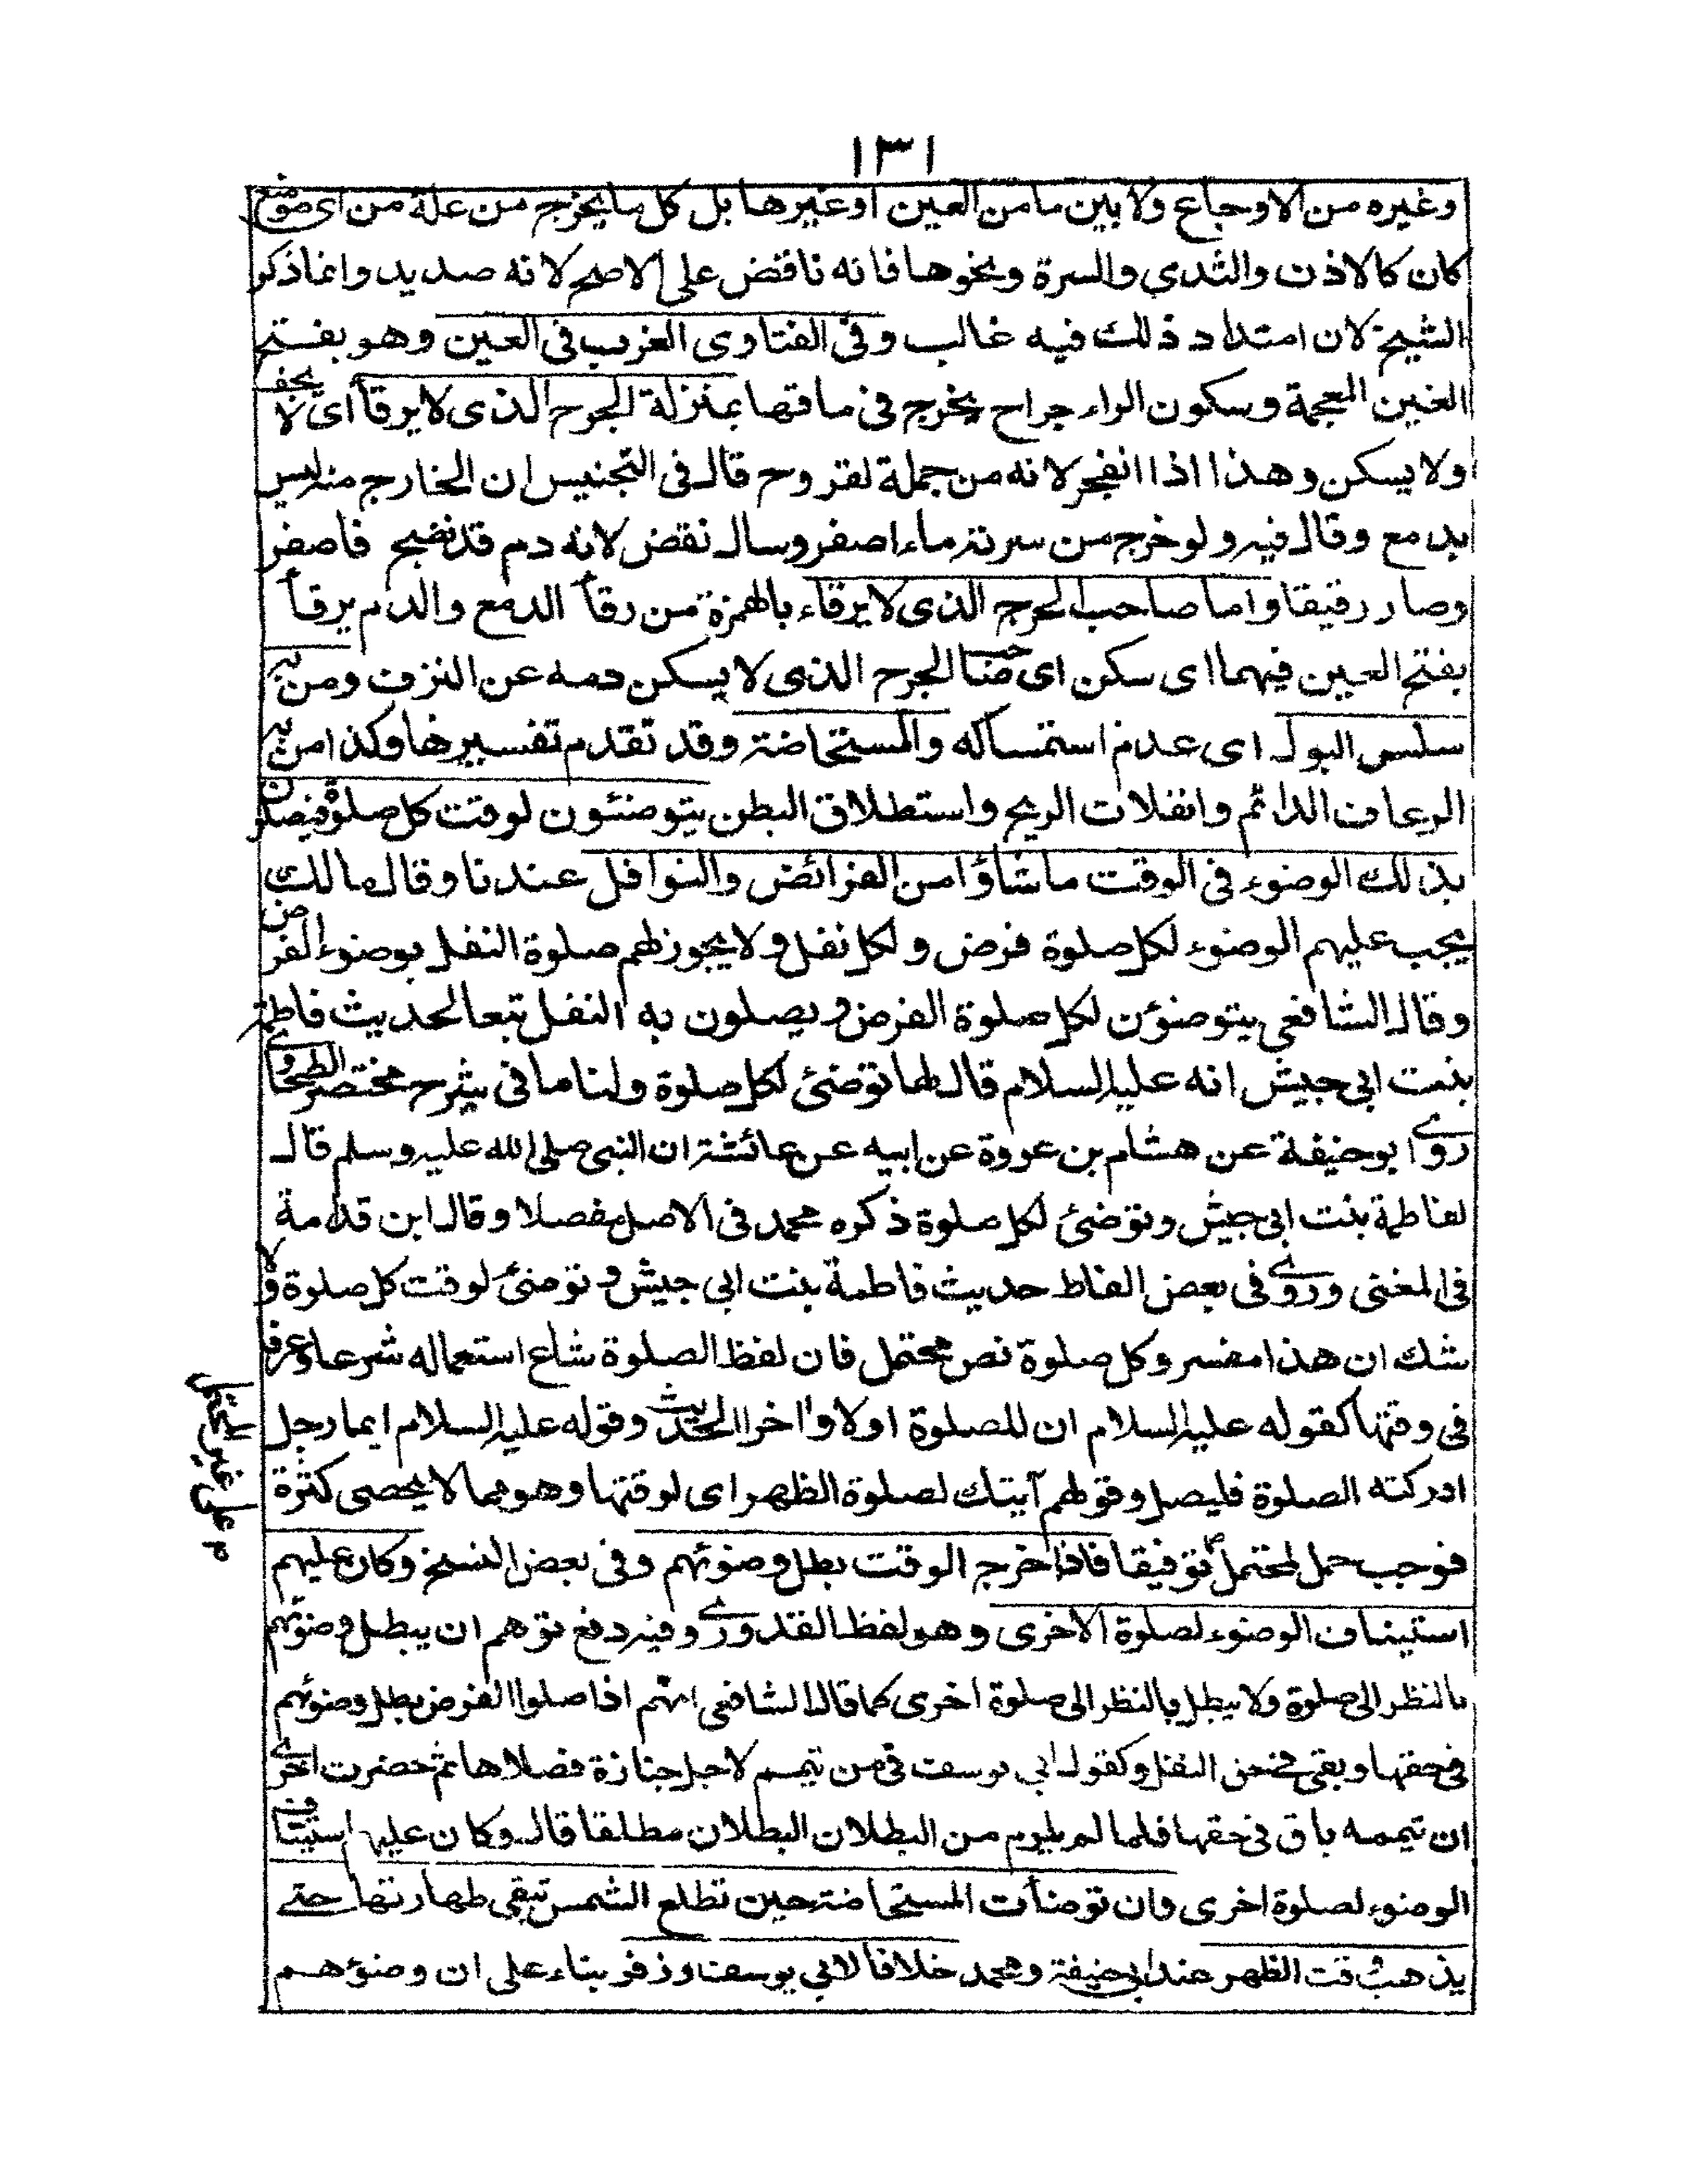 ١٣١
وغيره من الاوجاع ولا بين ما من العين او غيرها بل كل ما يخرج من علة من اى موضع
كان كالاذن والثدي والسرة ونحوها فانه ناقض على الاصح لانه صديد وانما ذكر
الشيخ لان امتداد ذلك فيه غالب وفى الفتاوى الغرب فى العين وهو بفتح
الغين المعجمة وسكون الراء جراح يخرج فى ماقها بمنزلة الجرح الذى لا يرقأ اى لا يجف
ولا يسكن وهذا اذا انفجر لانه من جملة لقروح قال فى التجنيس ان الخارج منه ليس
بدمع وقال فيه ولو خرج من سرته ماء اصفر وسال نقض لانه دم قد نضج فاصفر
وصار رقيقا واما صاحب الجرح الذى لا يرقاء بالهمزة من رقأ الدمع والدم يرقأ
بفتح العين فيهما اى سكن اى صاحب الجرح الذى لا يسكن دمه عن النزف ومن به
سلس البول اى عدم استمساكه والمستحاضة وقد تقدم تفسيرها وكذا من به
الرعاف الدائم وانفلات الريح واستطلاق البطن يتوضئون لوقت كل صلوة فيصلون
بذلك الوضوء فى الوقت ما شاؤا من الفرائض والنوافل عندنا وقال مالك
يجب عليهم الوضوء لكل صلوة فرض ولكل نفل ولا يجوز لهم صلوة النفل بوضوء الفرض
وقال الشافعى يتوضؤن لكل صلوة الفرض ويصلون به النفل تبعا لحديث فاطمة
بنت ابى حبيش انه عليه السلام قال لها توضئ لكل صلوة ولنا ما فى شرح مختصر الطحاوى
روى ابو حنيفة عن هشام بن عروة عن ابيه عن عائشة ان النبى صلى الله عليه وسلم قال
لفاطمة بنت ابى حبيش وتوضئ لكل صلوة ذكره محمد فى الاصل مفصلا وقال ابن قدامة
فى المغنى وروى فى بعض الفاظ حديث فاطمة بنت ابى حبيش وتوضئ لوقت كل صلوة ولا
شك ان هذا مفسر وكل صلوة نص محتمل فان لفظ الصلوة شاع استعماله شرعا وعرفا
فى وقتها كقوله عليه السلام ان للصلوة اولا واخرا الحديث وقوله عليه السلام ايما رجل
ادركته الصلوة فليصل وقولهم آيتك لصلوة الظهر اى لوقتها وهو مما لا يحصى كثرة
فوجب حمل المحتمل توفيقا فاذا خرج الوقت بطل وضوئهم وفى بعض النسخ وكان عليهم
استيناف الوضوء لصلوة الاخرى وهو لفظ القدورى وفيه دفع توهم ان يبطل وضوئهم
بالنظر الى صلوة ولا يبطل بالنظر الى صلوة اخرى كما قال الشافعى انهم اذا صلوا الفرض بطل وضوئهم
فى حقها وبقى فى حق النفل وكقول ابي يوسف فى من تيمم لاجل جنازة فصلاها ثم حضرت اخرى
ان تيممه باق فى حقها فلما لم يلزم من البطلان البطلان مطلقا قال وكان عليه استيناف
الوضوء لصلوة اخرى وان توضأت المستحاضة حين تطلع الشمس تبقى طهارتها حتى
يذهب وقت الظهر عند ابى حنيفة ومحمد خلافا لابي يوسف وزفر بناء على ان وضوءهم